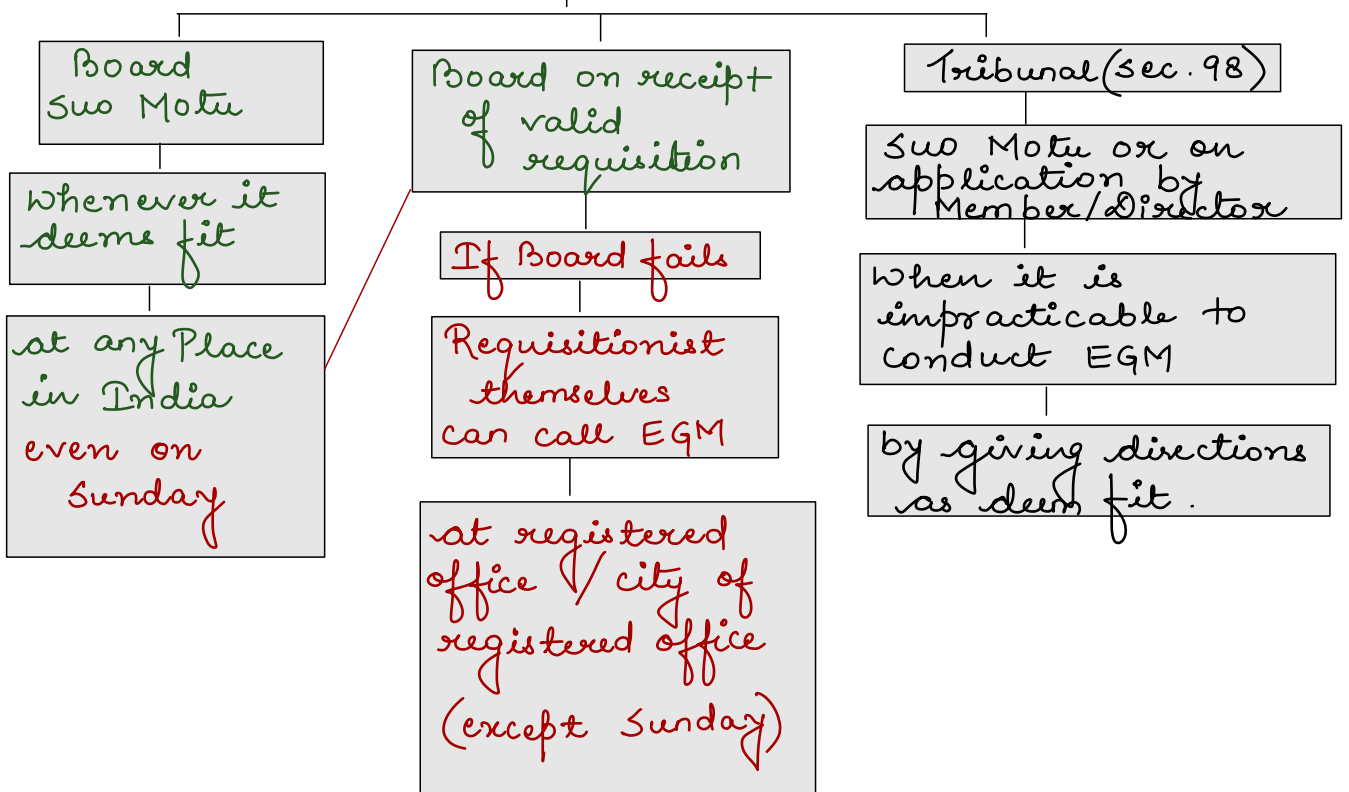 Board
Suo Motu
Whenever it
deems fit
at any Place
in India
even on
Sunday
Board on receipt
of valid
requisition
If Board fails
Requisitionist
themselves
can call EGM
at registered
office / city of
registered office
(except Sunday)
Tribunal (sec. 98)
Suo Motu or on
application by
Member/Director
When it is
impracticable to
conduct EGM
by giving directions
as deem fit.